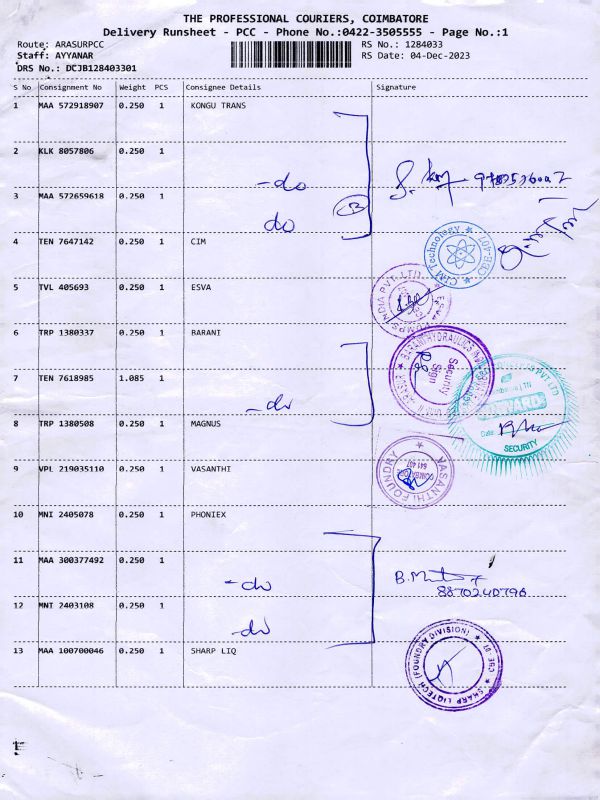 THE PROFESSIONAL COURIERS, COIMBATORE
Delivery Runsheet - PCC - Phone No.:0422-3505555 - Page No.:1
Route: ARASURPCC
Staff: AYYANAR
DRS No.: DCJB128403301
RS No.: 1284033
RS Date: 04-Dec-2023
S No Consignment No Weight PCS Consignee Details Signature
1 MAA 572918907 0.250 1 KONGU TRANS
2 KLK 8057806 0.250 1
-do
3 MAA 572659618 0.250 1
do
4 TEN 7647142 0.250 1 CIM
CIM Technology
5 TVL 405693 0.250 1 ESVA
6 TRP 1380337 0.250 1 BARANI
Security
Sign
7 TEN 7618985 1.085 1
-do
Date
SECURITY
8 TRP 1380508 0.250 1 MAGNUS
9 VPL 219035110 0.250 1 VASANTHI
VASANTHI FOUNDRY
COIMBATORE
641 407
10 MNI 2405078 0.250 1 PHONIEX
11 MAA 300377492 0.250 1
-do
8870240796
12 MNI 2403108 0.250 1
-do
13 MAA 100700046 0.250 1 SHARP LIQ
SHARP LIQTECH (FOUNDRY DIVISION)